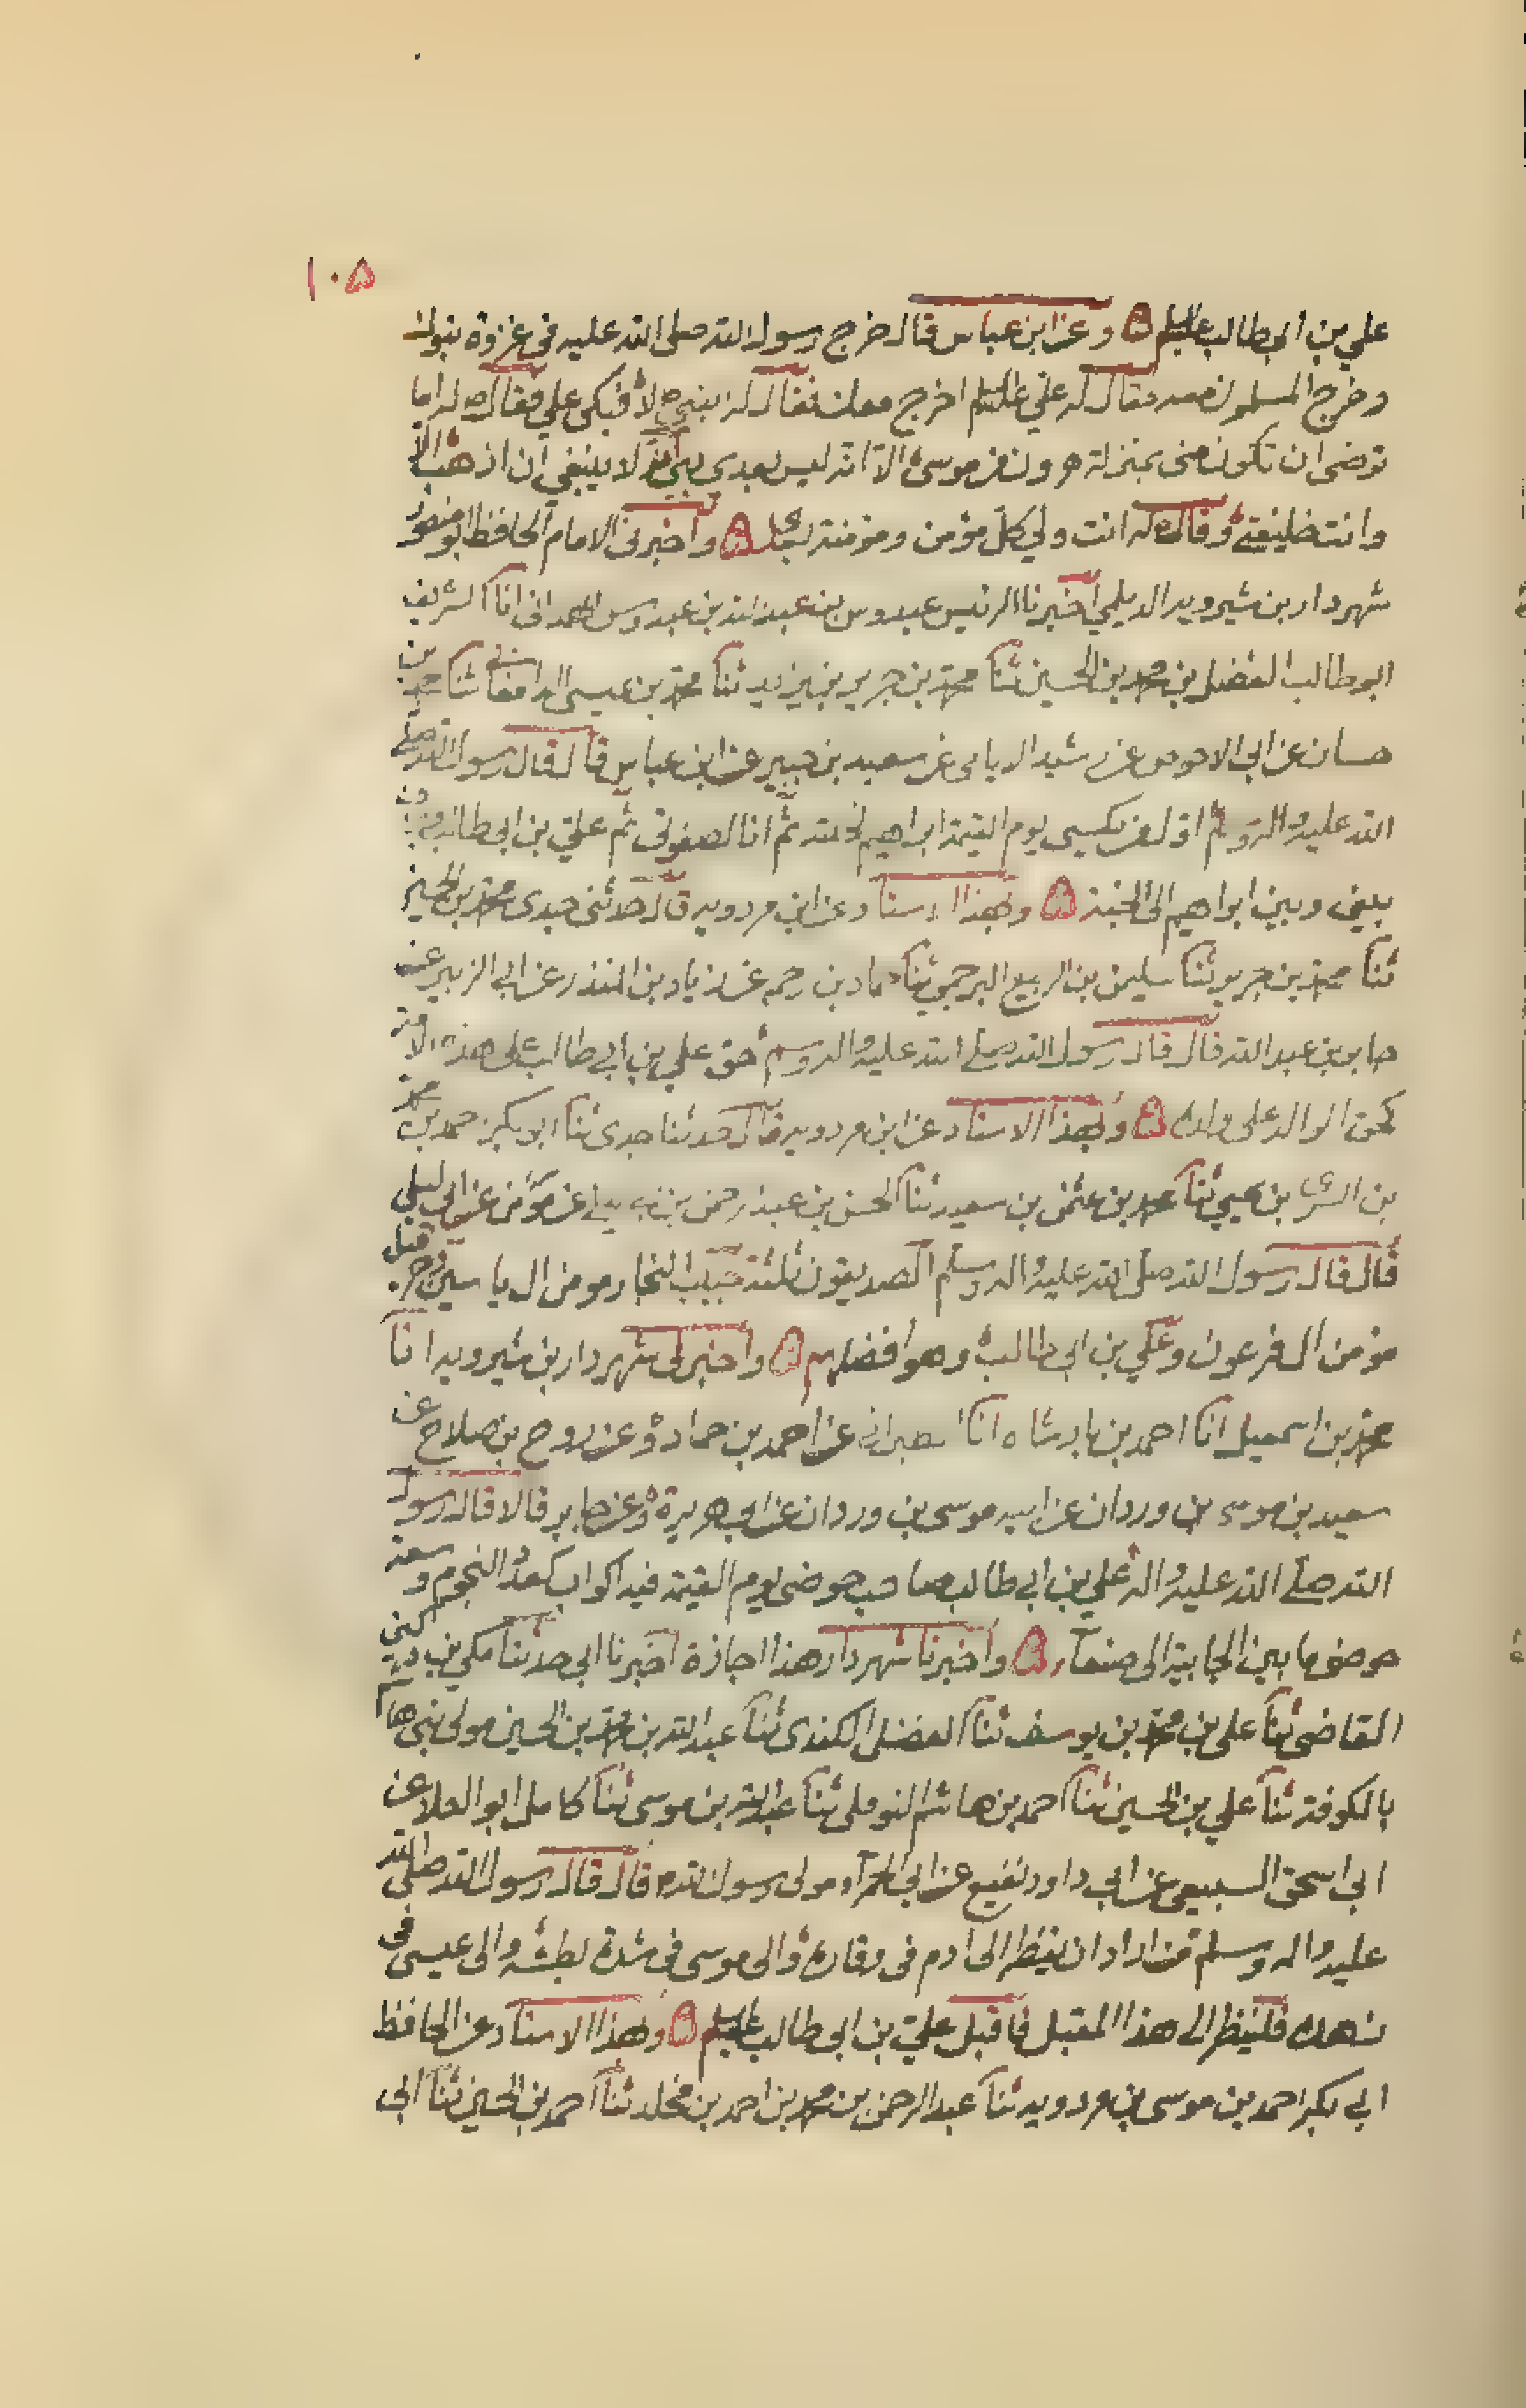 ١٠٥
علي بن ابي طالب عليه السلم ٥ وعن ابن عباس قال خرج رسول الله صلى الله عليه في غزوة تبوك
وخرج المسلمون معه فقال له علي عليه السلم اخرج معك فقال له النبي ص لا فبكى علي فقال ص له اما
ترضى ان تكون مني بمنزلة هرون من موسى الا انه ليس بعدي نبي انه لا ينبغي ان اذهب الا
وانت خليفتي وقال ص له انت ولي كل مؤمن ومؤمنة بعدي ٥ واخبرني الامام الحافظ ابو منصور
شهردار بن شيرويه الديلمي اخبرنا الرئيس عبدوس بن عبد الله بن عبدوس الهمداني انا الشريف
ابو طالب المفضل بن محمد بن الحسين ثنا محمد بن جرير بن يزيد ثنا محمد بن عيسى الدامغاني ثنا محمد بن
حسان عن ابي الاحوص عن زبيد الايامي عن سعيد بن جبير عن ابن عباس قال قال رسول الله صلى
الله عليه واله وسلم اول من يكسى يوم القيمة ابراهيم لخلته ثم انا لصفوتي ثم علي بن ابي طالب يزف
بيني وبين ابراهيم الى الجنة ٥ وبهذا الاسناد عن ابن مردويه قال حدثني جدي محمد بن الحسين
ثنا محمد بن جرير ثنا سليمن بن الربيع البرجمي ثنا حماد بن رحم عن زياد بن المنذر عن ابي الزبير عن
جابر بن عبد الله قال قال رسول الله صلى الله عليه واله وسلم حق علي بن ابي طالب على هذه الامة
كحق الوالد على ولده ٥ وبهذا الاسناد عن ابن مردويه قال حدثنا جدي ثنا ابو بكر احمد بن محمد
بن السري بن يحيى ثنا محمد بن عثمن بن سعيد ثنا الحسن بن عبد الرحمن بن عن ابي ليلى
قال قال رسول الله صلى الله عليه واله وسلم الصديقون ثلثة حبيب النجار مومن ال ياسين وحزقيل
مؤمن ال فرعون وعلي بن ابي طالب وهو افضلهم ٥ واخبرني شهردار بن شيرويه انا
محمد بن اسمعيل انا احمد بن بادشاه انا الطبراني عن احمد بن حماد و عن روح بن صلاح عن
سعيد بن موسى بن وردان عن ابيه موسى بن وردان عن ابي هريرة وعن جابر قالا قال رسول
الله صلى الله عليه واله علي بن ابي طالب صاحب حوضي يوم القيمة فيه اكواب كعدد النجوم وسعة
حوضي ما بين الجابية الى صنعآء ٥ واخبرنا شهردار هذا اجازة اخبرنا ابي حدثنا مكي بن دكين
القاضي ثنا علي بن محمد بن يوسف ثنا الفضل الكندي ثنا عبد الله بن محمد بن الحسين مولى بني هاشم
بالكوفة ثنا علي بن الحسين ثنا احمد بن هاشم النوفلي ثنا عبيد الله بن موسى ثنا كامل ابو العلاء عن
ابي اسحق السبيعي عن ابي داود نفيع عن ابي الحمرآء مولى رسول الله ص قال قال رسول الله صلى الله
عليه واله وسلم من اراد ان ينظر الى ادم في وقاره والى موسى في شدة بطشه والى عيسى في
زهده فلينظر الى هذا المقبل فاقبل علي بن ابي طالب عليه السلم ٥ وبهذا الاسناد عن الحافظ
ابي بكر احمد بن موسى بن مردويه ثنا عبد الرحمن بن محمد بن احمد بن مخلد ثنا احمد بن الحسين ثنا ابي